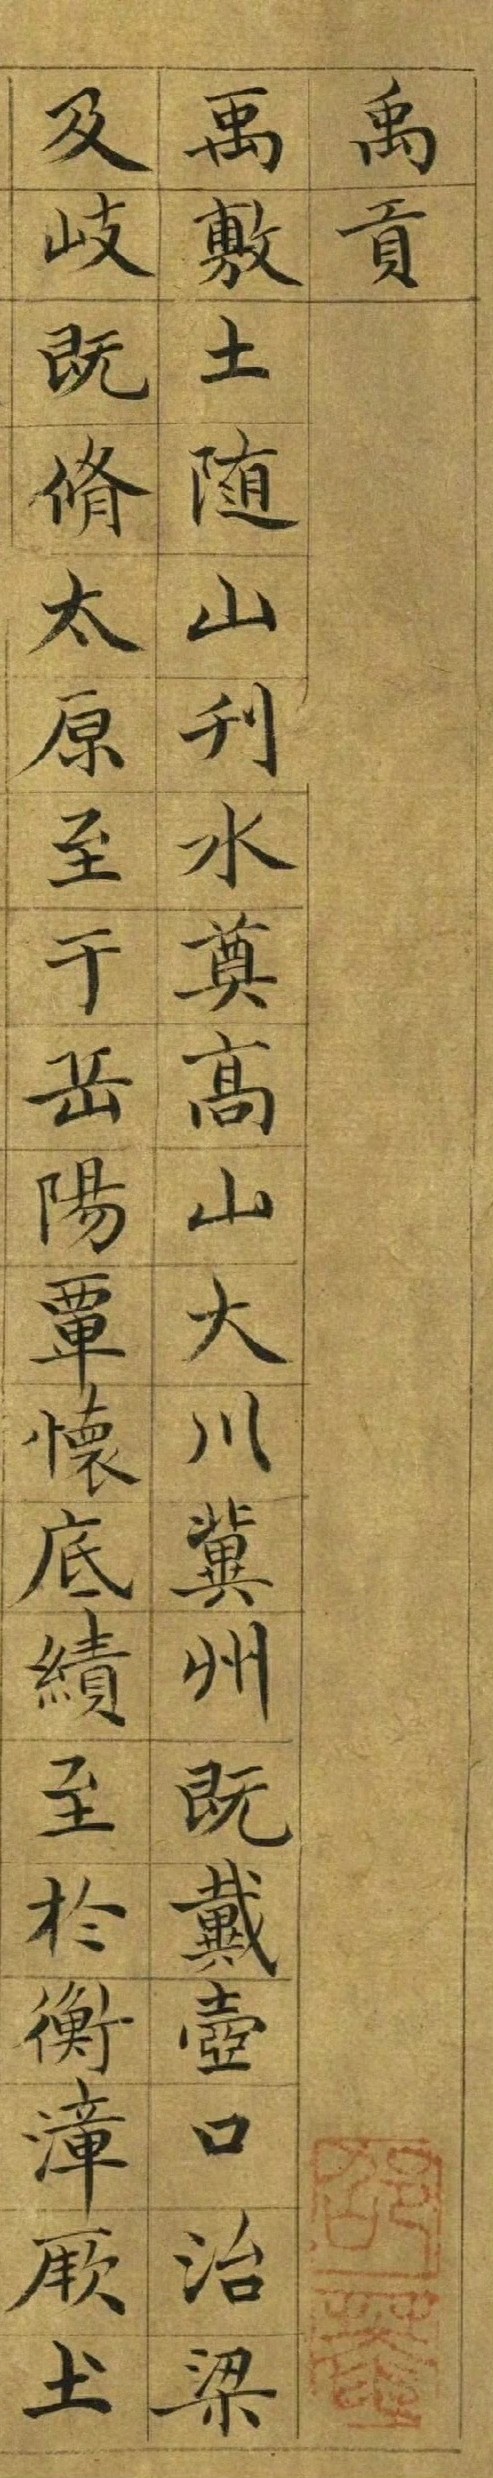 禹貢
禹敷土随山刋水奠高山大川冀州既戴壺口治梁
及岐既脩太原至于岳陽覃懷底績至於衡漳厥土